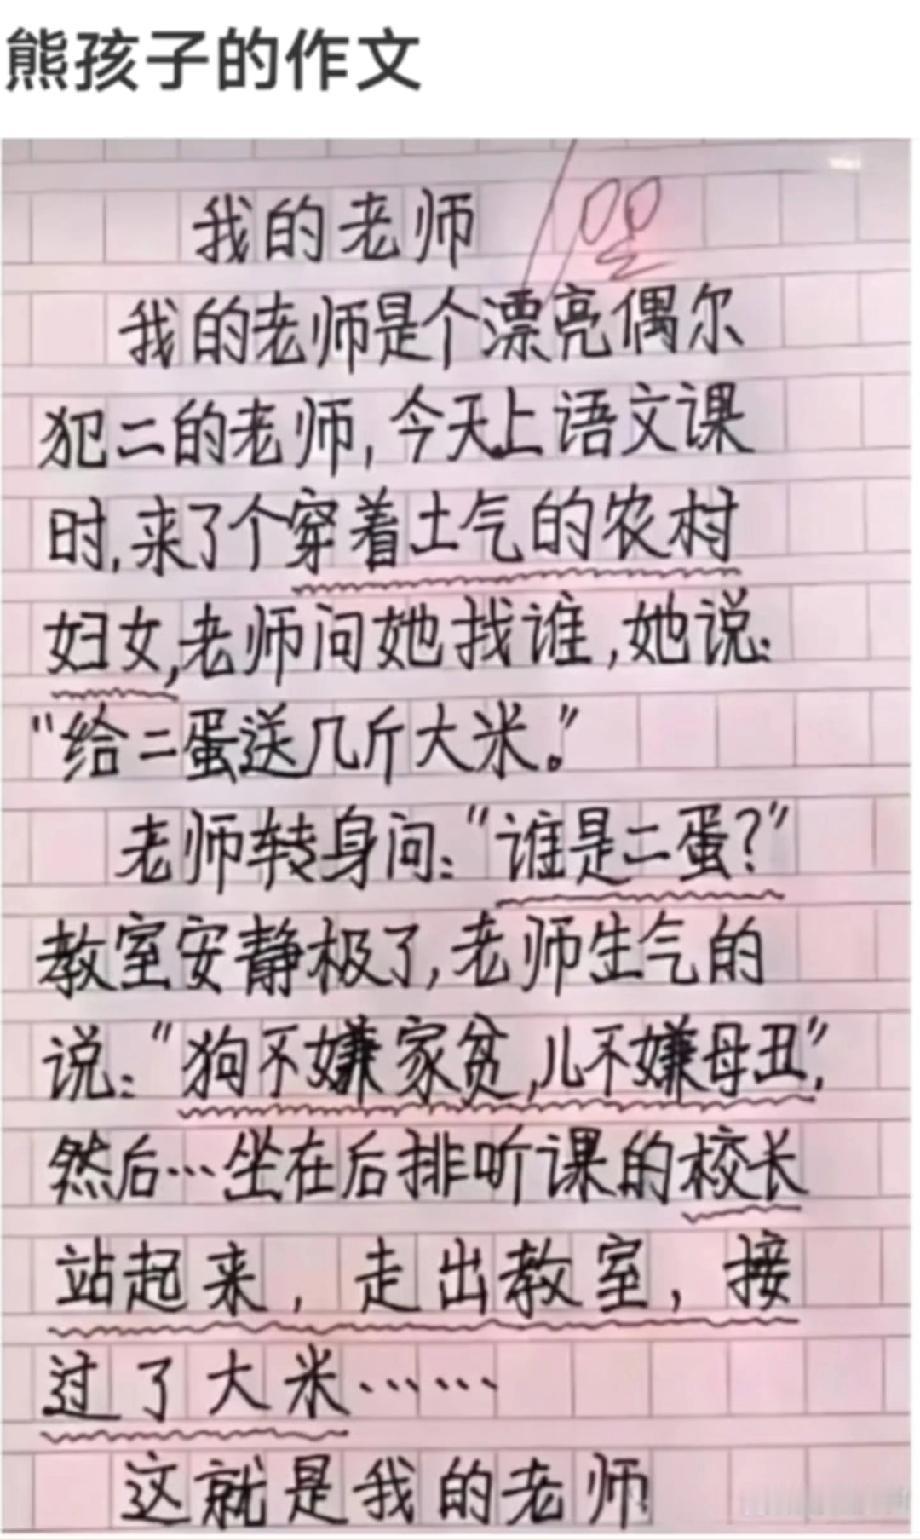 熊孩子的作文
我的老师 100
我的老师是个漂亮偶尔
犯二的老师,今天上语文课
时,来了个穿着土气的农村
妇女,老师问她找谁,她说:
“给二蛋送几斤大米。”
老师转身问:“谁是二蛋?”
教室安静极了,老师生气的
说:“狗不嫌家贫,儿不嫌母丑”,
然后…坐在后排听课的校长
站起来,走出教室,接
过了大米……
这就是我的老师